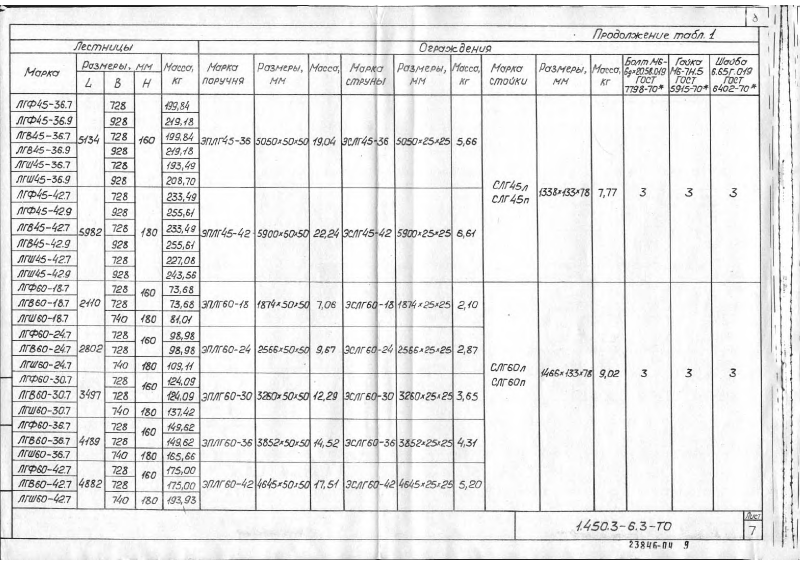 Продолжение табл. 1
Лестницы Ограждения
Марка Размеры, мм Масса, кг Марка поручня Размеры, мм Масса, кг Марка струны Размеры, мм Масса, кг Марка стойки Размеры, мм Масса, кг Болт М6-6g×20.58.019 ГОСТ 7798-70* Гайка М6-7Н.5 ГОСТ 5915-70* Шайба 6.65Г.019 ГОСТ 6402-70*
L В Н
ЛГФ45-36.7 5134 728 160 199,84 ЭПЛГ45-36 5050×50×50 19,04 ЭСЛГ45-36 5050×25×25 5,66 СЛГ45л СЛГ45п 1338×133×78 7,77 3 3 3
ЛГФ45-36.9 928 219,18
ЛГВ45-36.7 728 199,84
ЛГВ45-36.9 928 219,18
ЛГШ45-36.7 728 193,49
ЛГШ45-36.9 928 208,70
ЛГФ45-42.7 5982 728 180 233,49 ЭПЛГ45-42 5900×50×50 22,24 ЭСЛГ45-42 5900×25×25 6,61
ЛГФ45-42.9 928 255,61
ЛГВ45-42.7 728 233,49
ЛГВ45-42.9 928 255,61
ЛГШ45-42.7 728 227,08
ЛГШ45-42.9 928 243,56
ЛГФ60-18.7 2110 728 160 73,68 ЭПЛГ60-18 1874×50×50 7,06 ЭСЛГ60-18 1874×25×25 2,10 СЛГ60л СЛГ60п 1466×133×78 9,02 3 3 3
ЛГВ60-18.7 728 73,68
ЛГШ60-18.7 740 180 81,01
ЛГФ60-24.7 2802 728 160 98,98 ЭПЛГ60-24 2566×50×50 9,67 ЭСЛГ60-24 2566×25×25 2,87
ЛГВ60-24.7 728 98,98
ЛГШ60-24.7 740 180 109,11
ЛГФ60-30.7 3497 728 160 124,09 ЭПЛГ60-30 3260×50×50 12,29 ЭСЛГ60-30 3260×25×25 3,65
ЛГВ60-30.7 728 124,09
ЛГШ60-30.7 740 180 137.42
ЛГФ60-36.7 4189 728 160 149,62 ЭПЛГ60-36 3852×50×50 14,52 ЭСЛГ60-36 3852×25×25 4,31
ЛГВ60-36.7 728 149,62
ЛГШ60-36.7 740 180 165,66
ЛГФ60-42.7 4882 728 160 175,00 ЭПЛГ60-42 4645×50×50 17,51 ЭСЛГ60-42 4645×25×25 5,20
ЛГВ60-42.7 728 175,00
ЛГШ60-42.7 740 180 193,93
1.450.3-6.3-ТО
Лист
7
23846-04 9